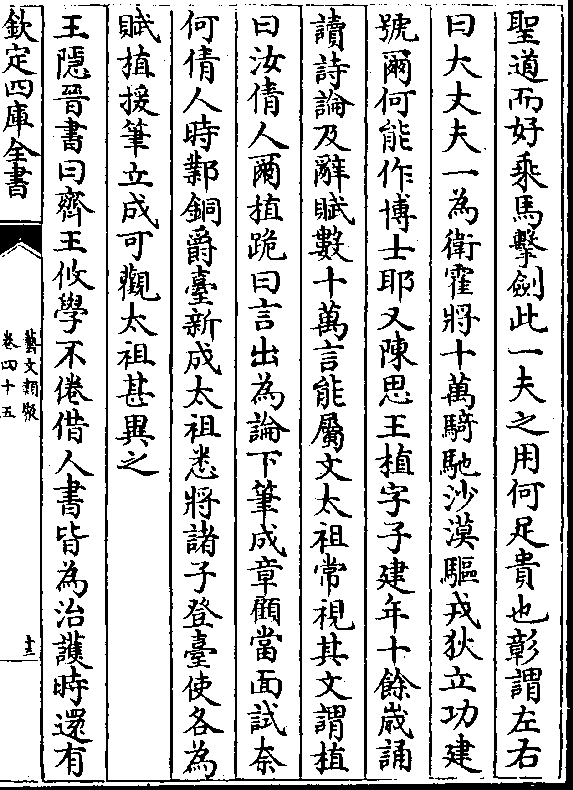 聖道而好乘馬擊劍此一夫之用何足貴也彰謂左右
曰大丈夫一為衛霍將十萬騎馳沙漠驅戎狄立功建
號爾何能作博士耶又陳思王植字子建年十餘歲誦
讀詩論及辭賦數十萬言能屬文太祖常視其文謂植
曰汝倩人爾植跪曰言出為論下筆成章顧當面試奈
何倩人時鄴銅爵臺新成太祖悉將諸子登臺使各為
賦植援筆立成可觀太祖甚異之
王隱晉書曰齊王攸學不倦借人書皆為治護時還有
欽定四庫全書
藝文類聚
卷四十五
十三